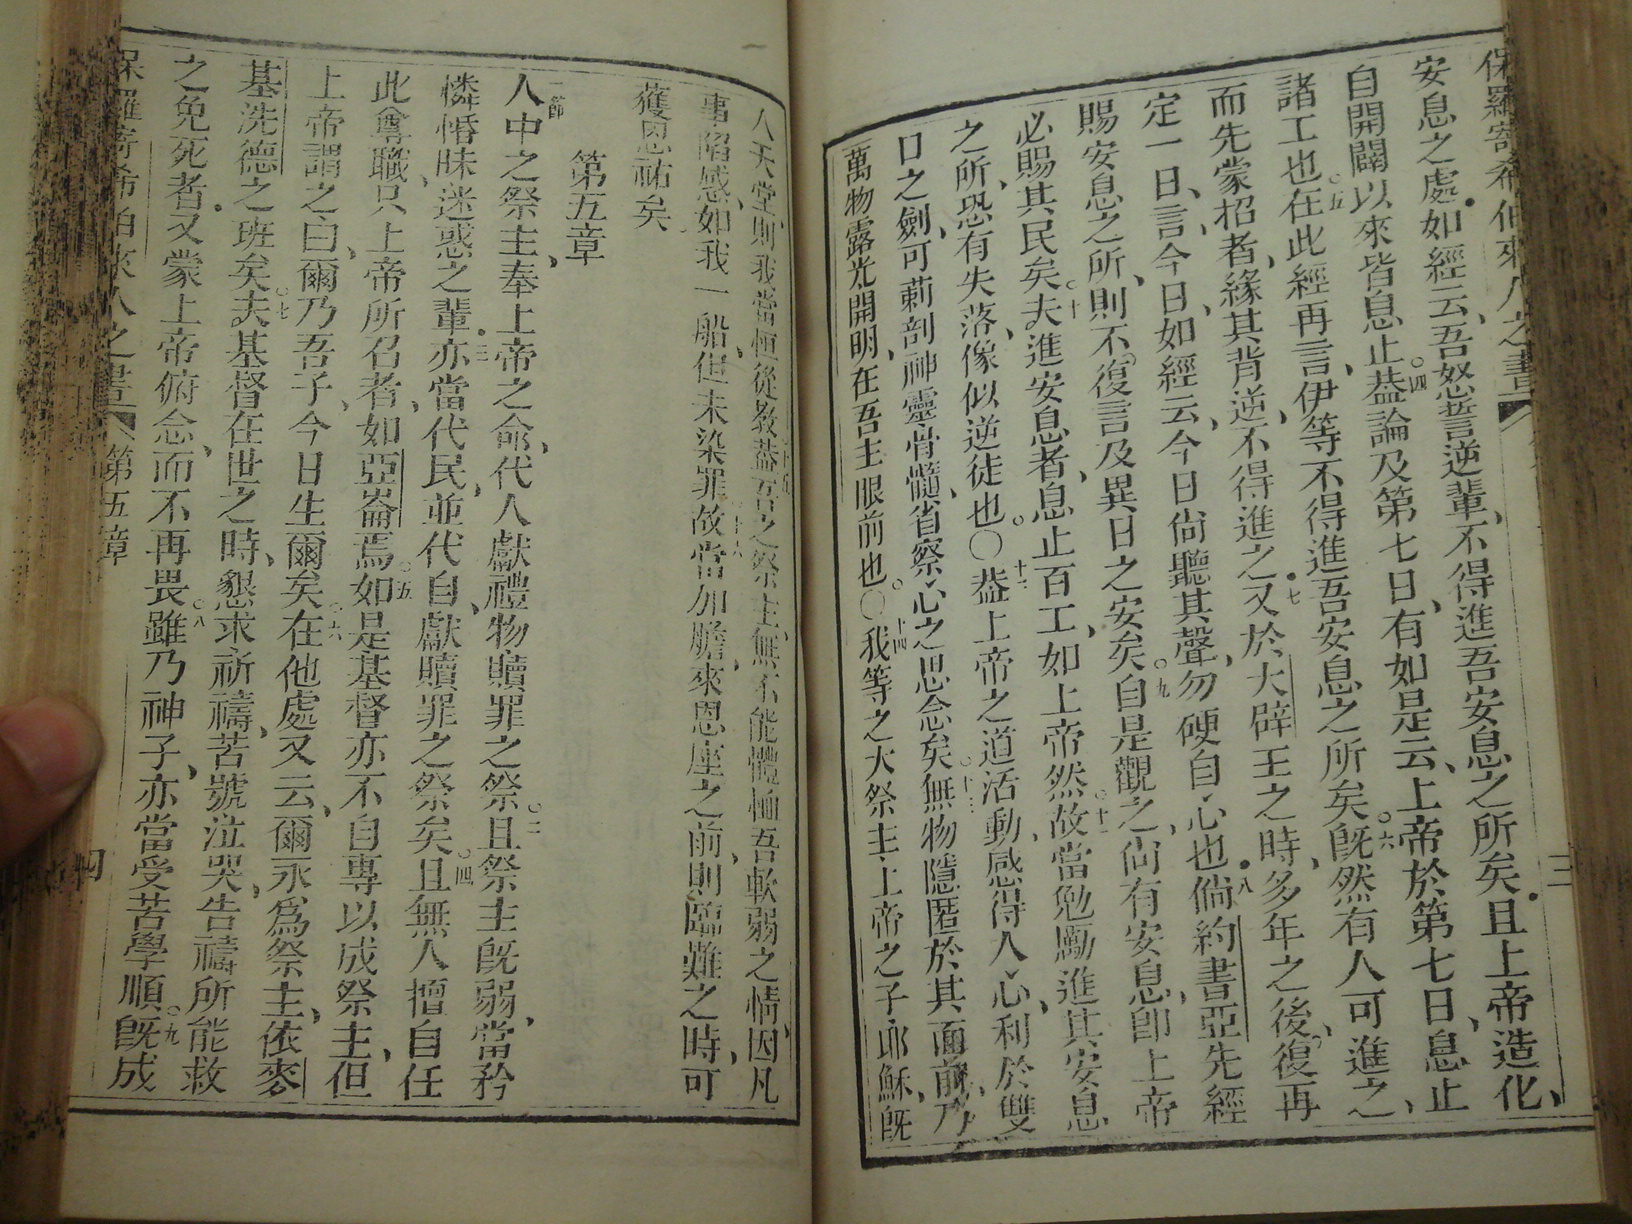 保羅寄希伯來人之書
三
安息之處如經云、吾怒誓逆輩、不得進吾安息之所矣且上帝造化、
自開闢以來皆息止、○四葢論及第七日、有如是云、上帝於第七日、息止
諸工也○五在此經再言、伊等不得進吾安息之所矣○六既然有人可進之、
而先蒙招者、緣其背逆、不得進之七又於大辟王之時、多年之後、復再
定一日、言今日、如經云、今日尙聽其聲、勿硬自心也八倘約書亞先經
賜安息之所、則不復言及異日之安矣○九自是觀之、尙有安息、卽上帝
必賜其民矣○十夫進安息者、息止百工、如上帝然○十一故當勉勵進其安息
之所、恐有失落、像似逆徒也○〇十二葢上帝之道活動、感得人心、利於雙
口之劍、可剪剖神靈骨髓、省察心之思念矣○十三無物隱匿於其面前、乃
萬物露光開明、在吾主眼前也○〇十四我等之大祭主上帝之子耶穌、既
入天堂、則我當恒從教十五葢吾之祭主、無不能體恤吾軟弱之情、因凡
事陷感如我一般、但未染罪十六故當加膽、來恩座之前、則臨難之時、可
獲恩祐矣
第五章
一節人中之祭主、奉上帝之命、代人獻禮物贖罪之祭○二且祭主既弱、當矜
憐惛昧迷惑之輩三亦當代民、並代自、獻贖罪之祭矣○四且無人擅自任
此尊職、只上帝所召者、如亞崙焉○五如是基督亦不自專以成祭主、但
上帝謂之曰、爾乃吾子、今日生爾矣○六在他處又云、爾永爲祭主、依麥
基洗德之班矣○七夫基督在世之時、懇求祈禱、苦號泣哭、告禱所能救
之免死者又蒙上帝俯念、而不再畏○八雖乃神子、亦當受苦學順○九既成
保羅寄希伯來人之書
第五章
四